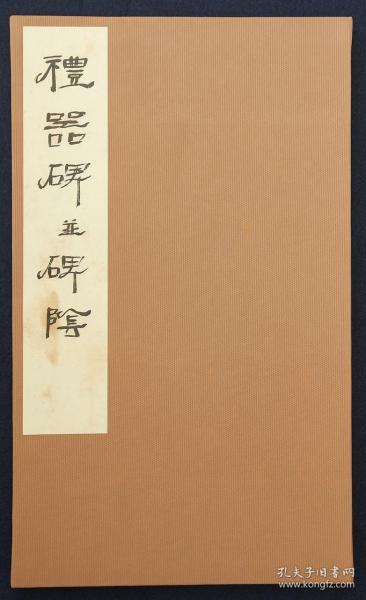 禮器碑並碑陰
孔夫子旧书网
www.kongfz.com